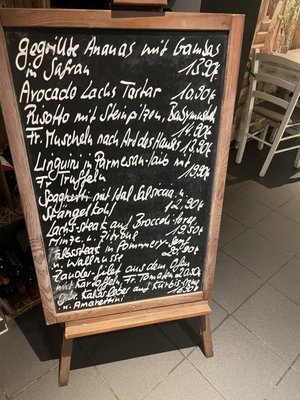 gegrillte Ananas mit Gambas
in Safran 13,90€
Avocado Lachs Tartar 10,90€
Risotto mit Steinpilzen, Babymuscheln 14,90€
Fr. Muscheln nach Art des Hauses 13,90€
Linguini in Parmesan-laib mit
Fr. Trüffeln 19,90€
Spaghetti mit Ital. Salsiccia u.
Stängelkohl 12,90€
Lachs-steak auf Broccoli-
Minze u. Zitrone 19,50€
Kalbssteak in Pommery-Senf
u. Wallnüsse 20,90€
Zander-Filet aus dem Ofen
mit Kartoffeln, Fr. Tomaten 20,50€
gebr. Kalbsleber auf Kürbis
u. Amarettini 16,90€